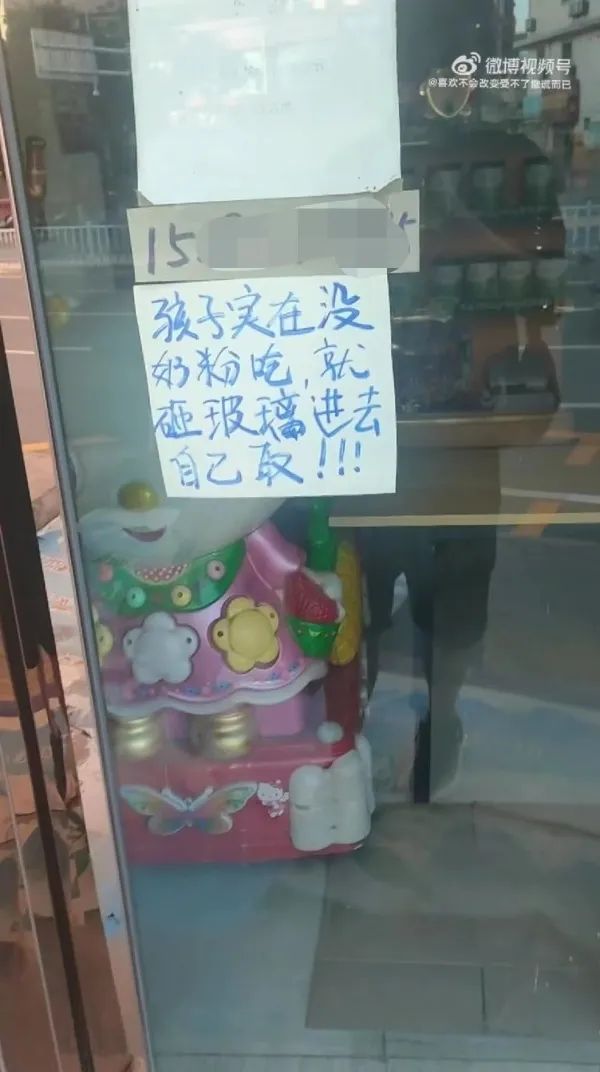 微博视频号
@喜欢不会改变受不了撒谎而已
15
孩子实在没
奶粉吃,就
砸玻璃进去
自己取!!!